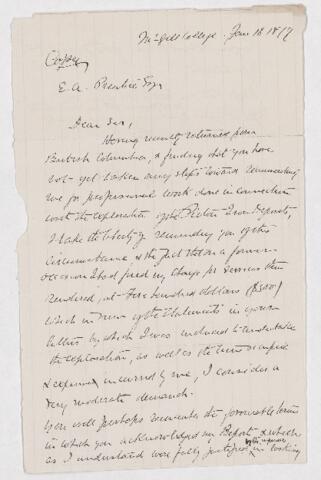 McGill College. Jan 18 1877
Copy
E. A. Prentice Esqr
Dear Sir,
Having recently returned from
British Columbia, & finding that you have
not yet taken any steps toward remunerating
me for professional work done in connection
with the exploration of the Pictou Iron Deposits,
I take the liberty of reminding you of the
circumstance & the fact that on a former
occasion I had fixed my charge for services then
rendered, at five hundred dollars ($500)
which in view of the statements in your
letters by which I was induced to undertake
the exploration, as well as the time occupied
& expense incurred by me, I consider a
very moderate demand.
You will perhaps remember the favourable terms
in which you acknowledged my Report & which
as I understand were fully justified in looking